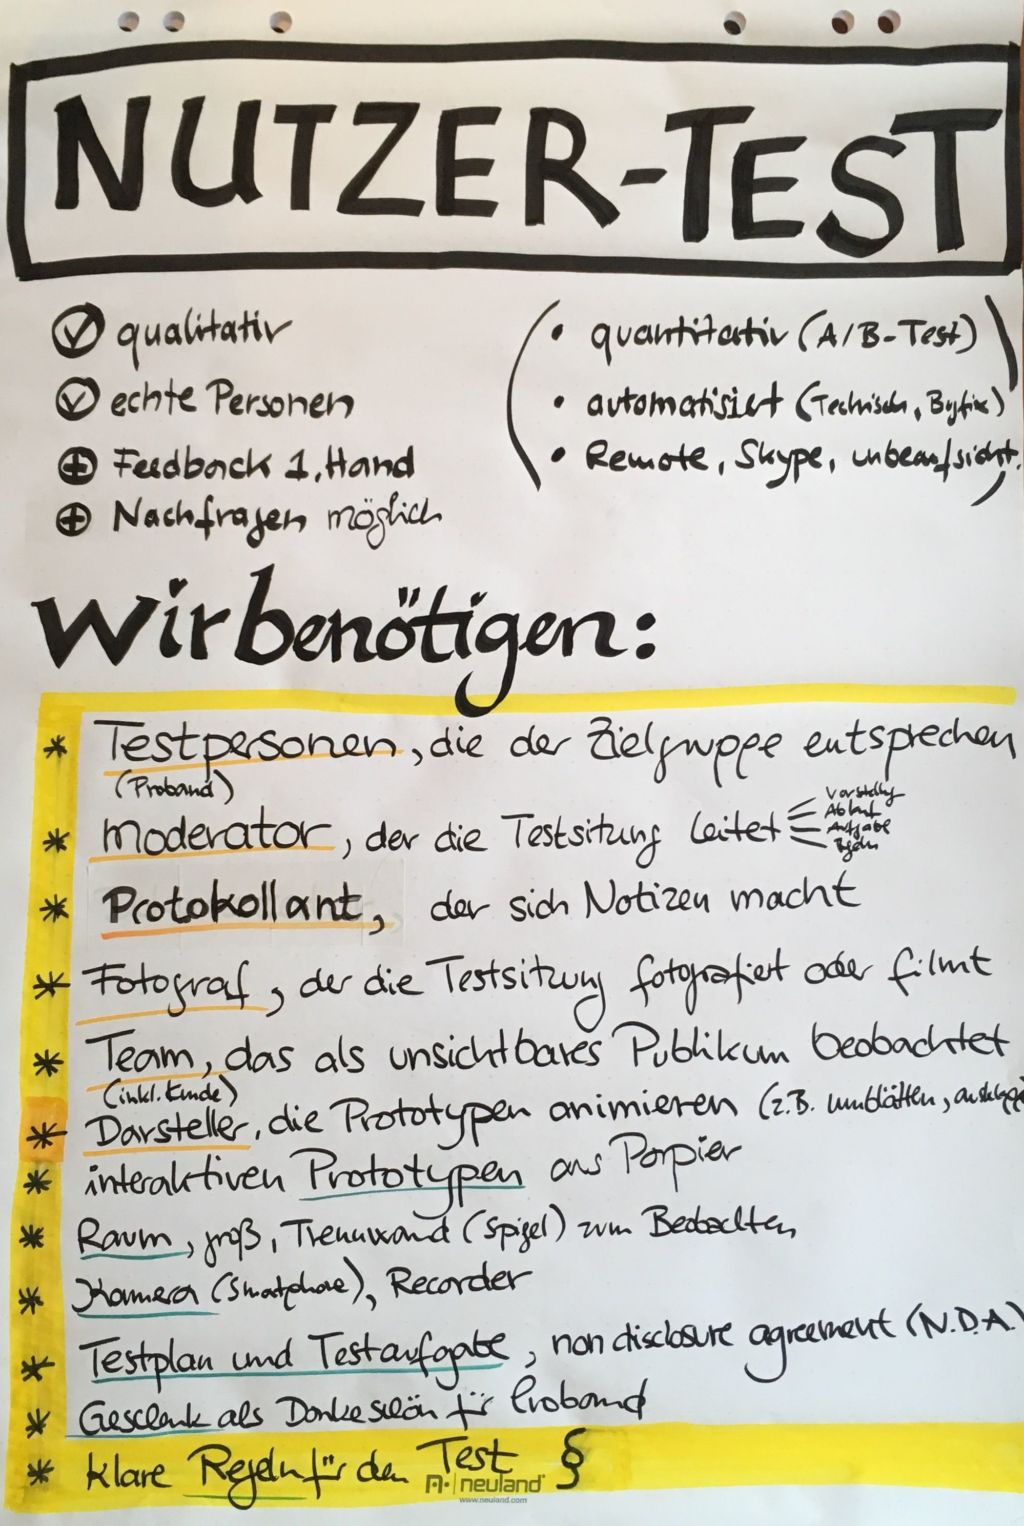 NUTZER-TEST
qualitativ
echte Personen
Feedback 1. Hand
Nachfragen möglich
( • quantitativ (A/B-Test)
• automatisiert (Technisch, Bugfix)
• Remote, Skype, unbeaufsicht. )
Wir benötigen:
* Testpersonen, die der Zielgruppe entsprechen
(Proband)
* Moderator, der die Testsitzung leitet
Vorstellg
Ablauf
Aufgabe
Regeln
* Protokollant, der sich Notizen macht
* Fotograf, der die Testsitzung fotografiert oder filmt
* Team, das als unsichtbares Publikum beobachtet
(inkl. Kunde)
* Darsteller, die Prototypen animieren (z.B. umblättern,
* interaktiven Prototypen aus Papier
* Raum, groß, Trennwand (Spigel) zum Beobachten
* Kamera (Smartphone), Recorder
* Testplan und Testaufgabe, non disclosure agreement (N.D.A.)
* Geschenk als Dankeschön für Proband
* klare Regeln für den Test §
neuland
www.neuland.com